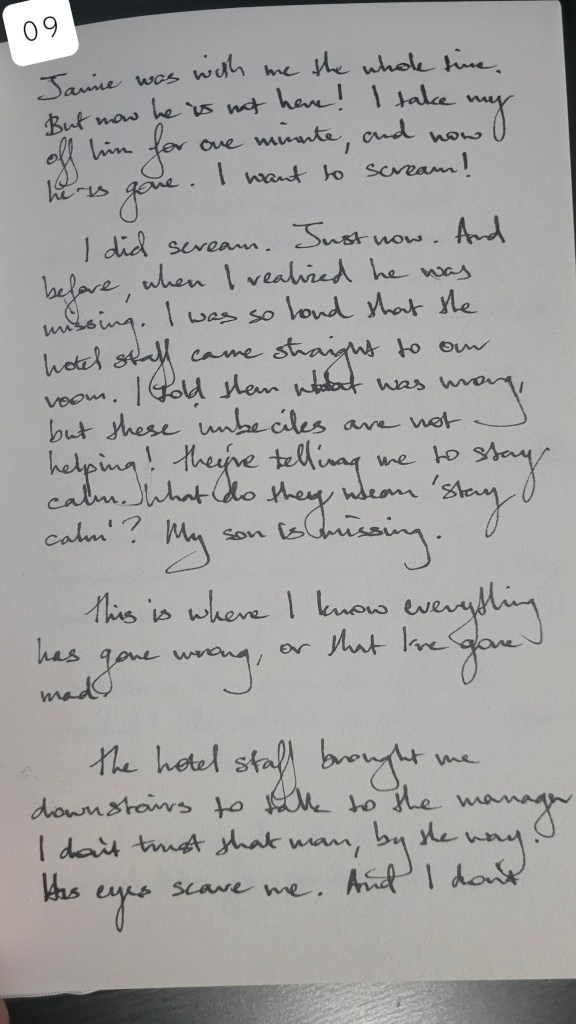 09
Jamie was with me the whole time.
But now he is not here! I take my
off him for one minute, and now
he is gone. I want to scream!
I did scream. Just now. And
before, when I realized he was
missing. I was so loud that the
hotel staff came straight to our
room. I told them what was wrong,
but these imbeciles are not
helping! They're telling me to stay
calm. What do they mean 'stay
calm'? My son is missing.
This is where I know everything
has gone wrong, or that I've gone
mad.
The hotel staff brought me
downstairs to talk to the manager
I don't trust that man, by the way.
His eyes scare me. And I don't